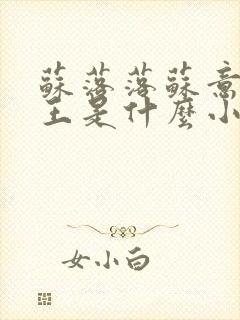 蘇落落蘇意
主是什麼小
女小白